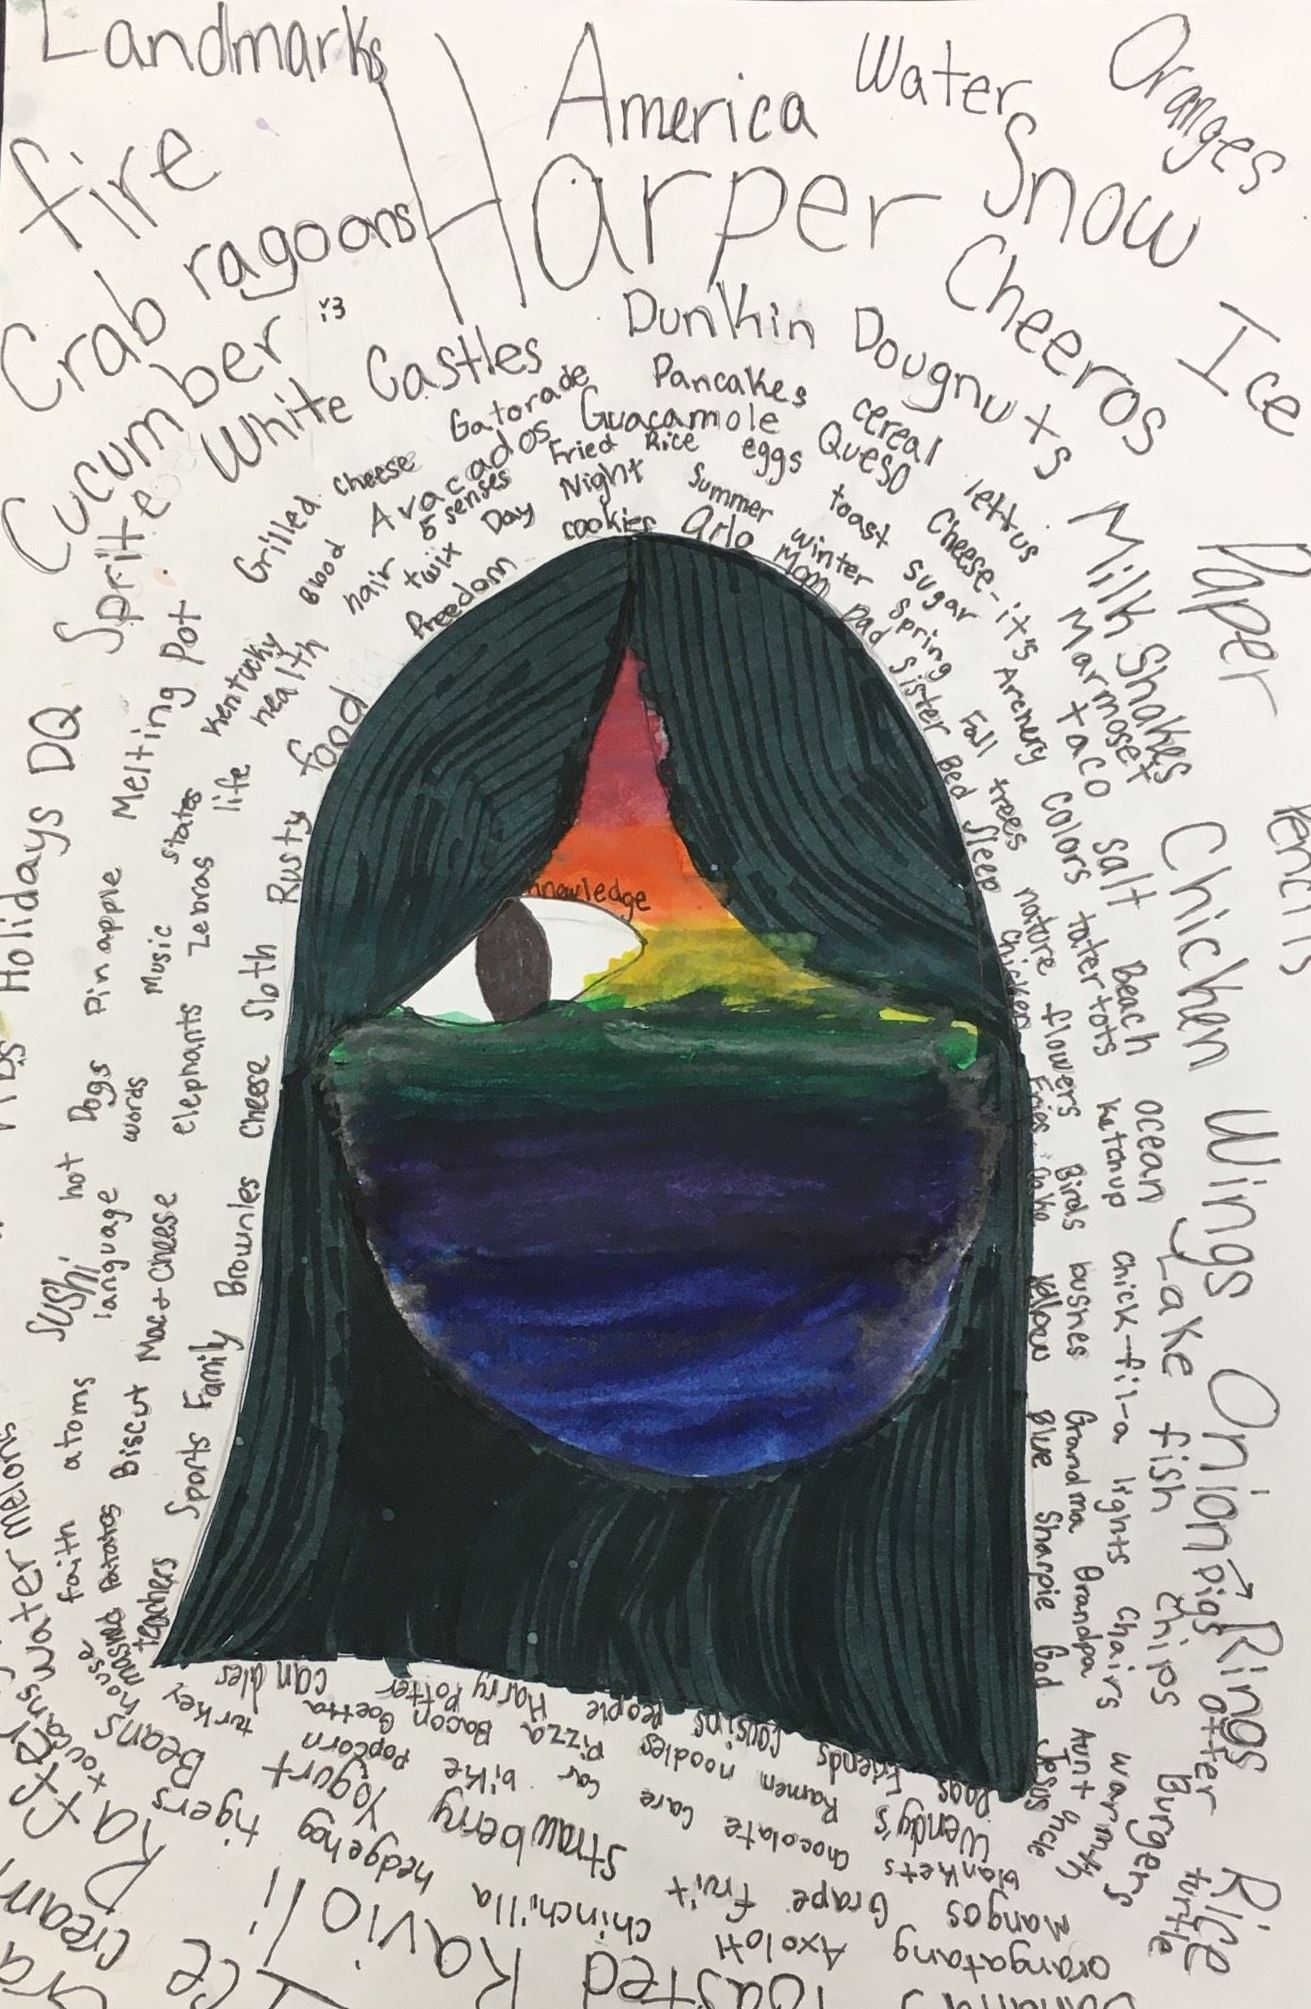 Landmarks
America
Water
Oranges
fire
Harper
Snow
Crab ragoons
Cheeros
Ice
Cucumber
White Castles
Dunkin Dougnuts
Sprite
Grilled cheese
Gatorade
Pancakes
cereal
lettus
Milk Shakes
Paper
Pencils
Blood
Avacados
Guacamole
Queso
Cheese-it's
Marmoset
hair
5 senses
Fried Rice
eggs
toast
sugar
Archery
taco
twix
Day
Night
Summer
winter
Spring
Fall
trees
freedom
cookies
Arlo
Mom
Dad
Sister
Bed
Sleep
chicken
Fries
Cake
Yellow
Blue
Sharpie
God
Jesus
knowledge
colors
nature
flowers
Birds
bushes
Grandma
Grandpa
Aunt
uncle
salt
tater tots
ketchup
chick-fil-a
lights
Chairs
warmth
Beach
ocean
Lake
fish
chips
Burgers
Chicken Wings
Onion Rings
pigs
otter
turtle
Rice
Holidays
DQ
Melting Pot
Kentucky
health
food
Pinapple
Music
states
life
Rusty
Zebras
elephants
Sloth
Cheese
Brownies
Family
Sports
teachers
hot Dogs
words
language
Sushi
Mac + Cheese
Biscut
atoms
faith
mashed Patatos
house
watermelons
toucans
Beans
turkey
candles
Harry Potter
People
cousins
Friends
Dogs
Goetta
Bacon
Pizza
noodles
Ramen
Wendy's
popcorn
Yogurt
bike
car
care
chocolate
blankets
tigers
hedgehog
Strawberry
Grape fruit
Mangos
chinchilla
Axolotl
orangatang
Ravioli
Toasted
Ice cream